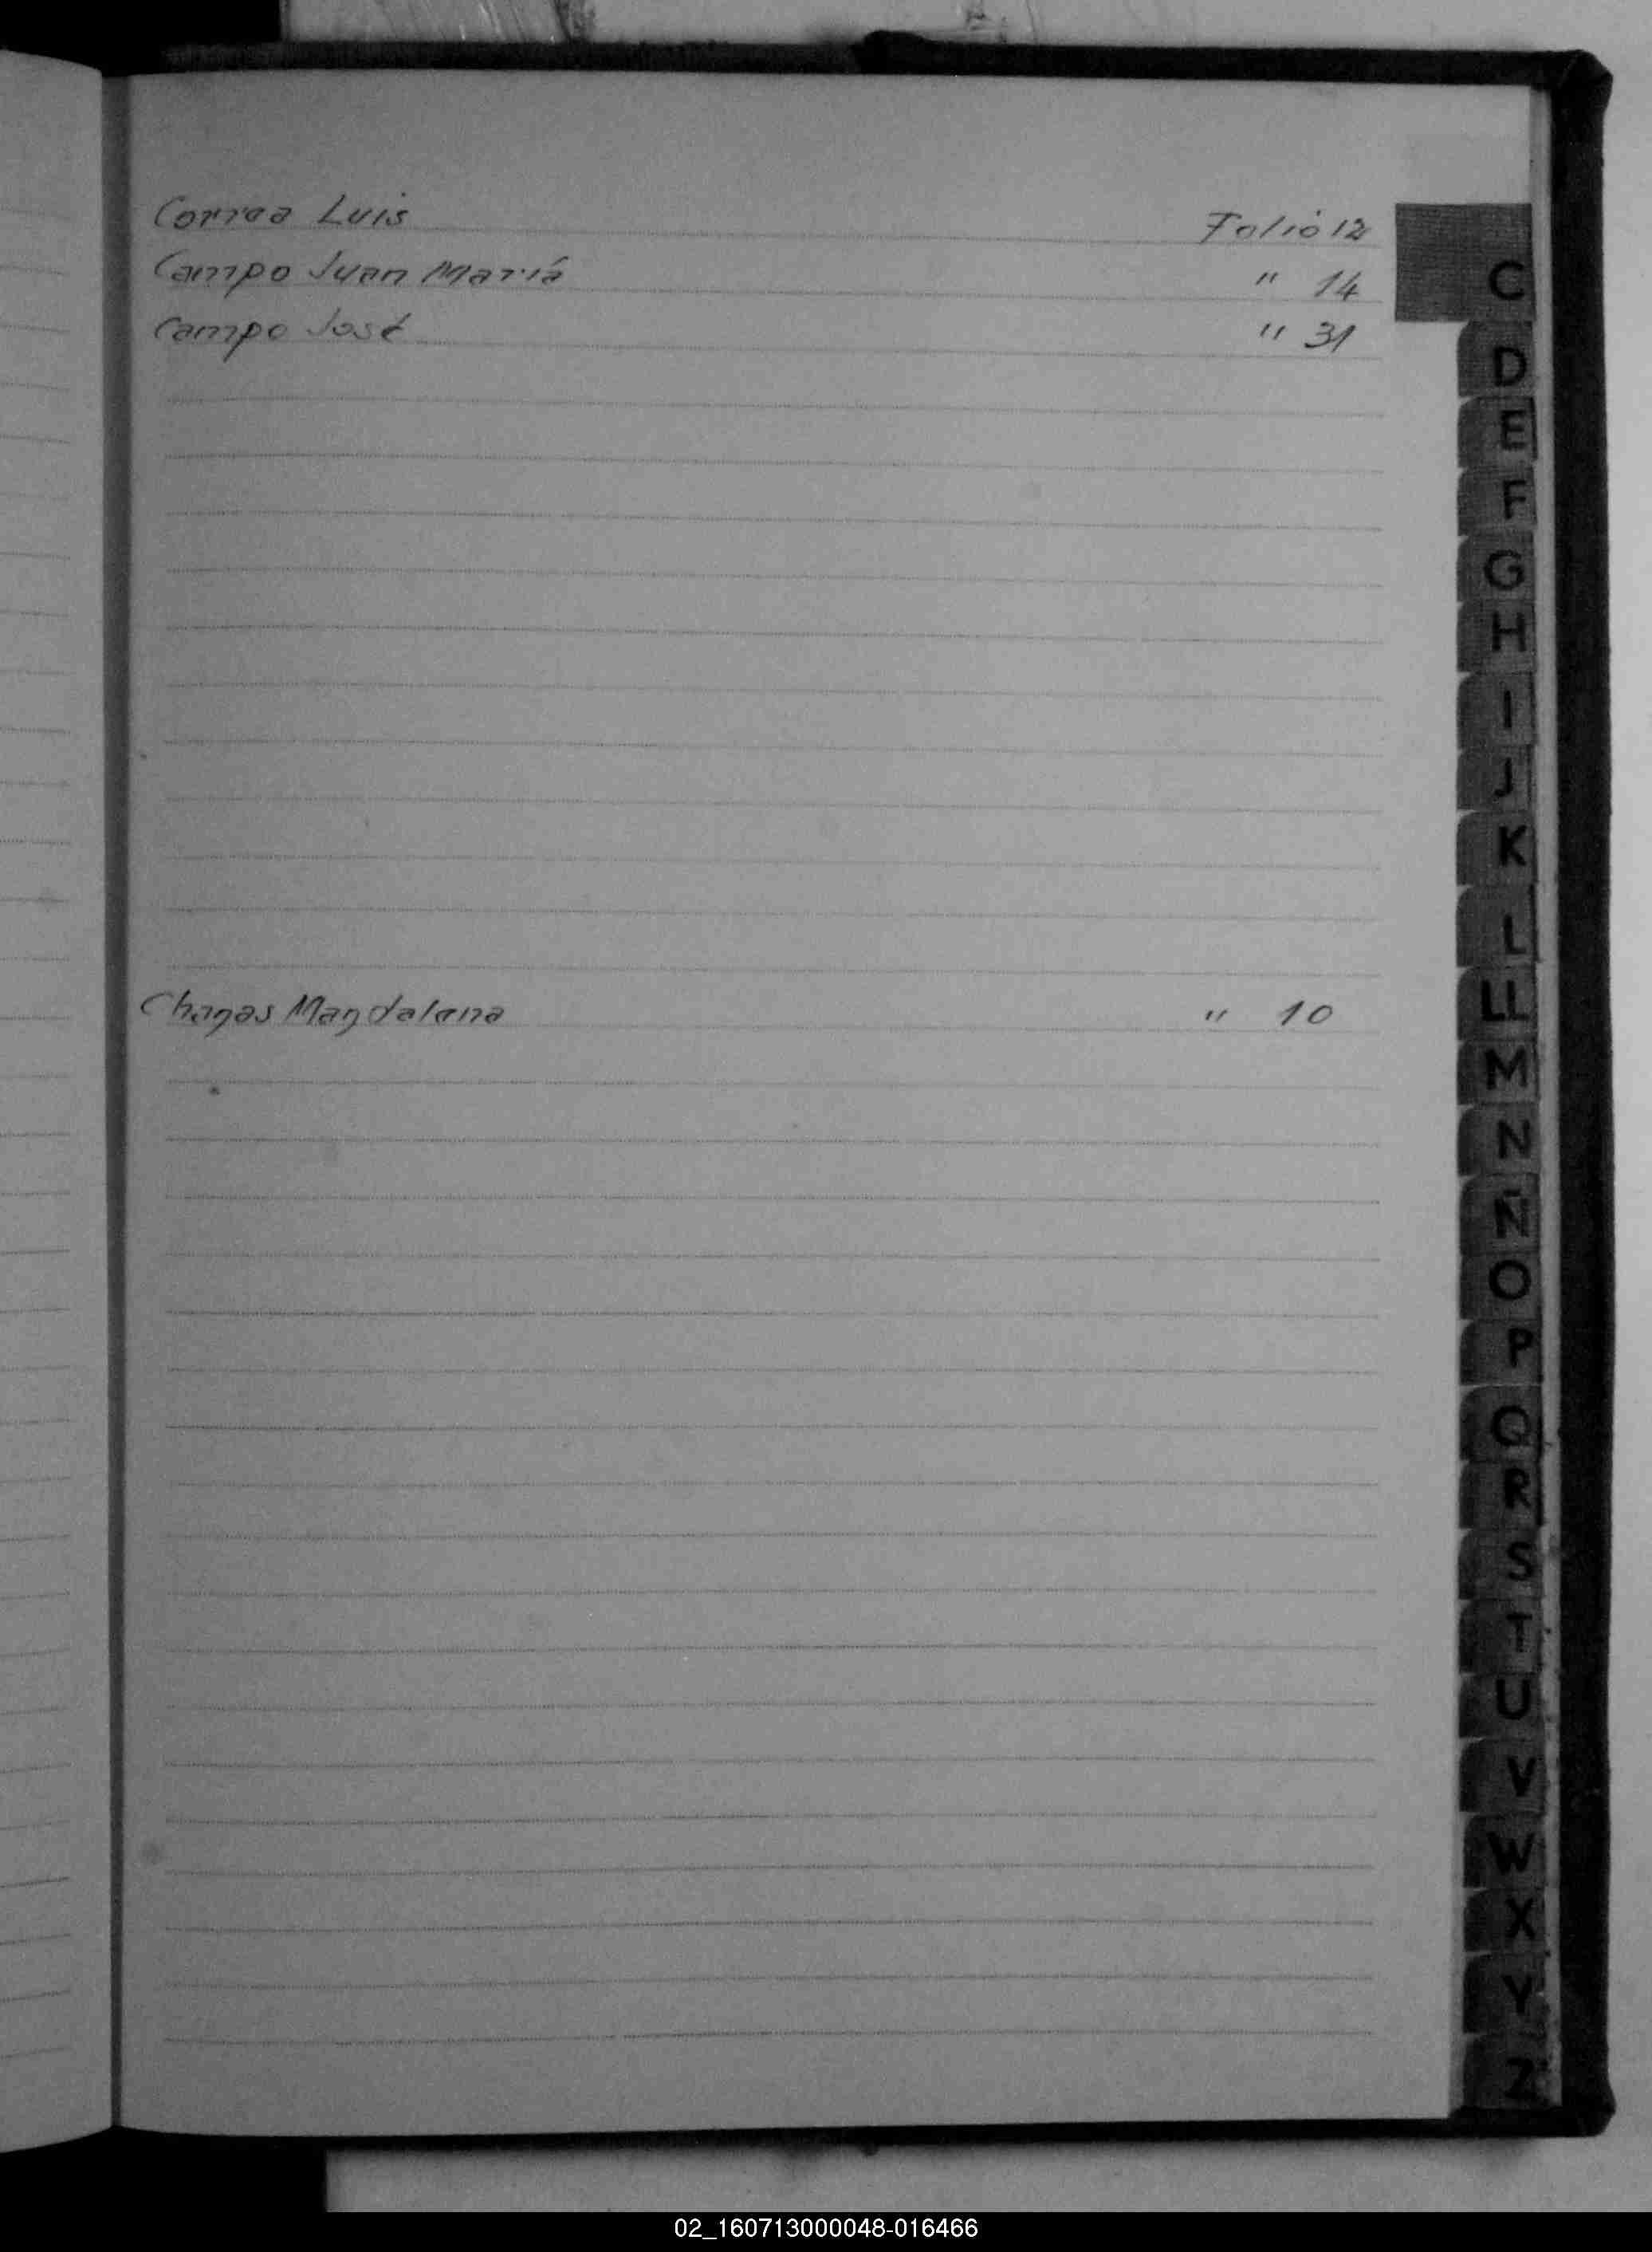 Correa Luis Folio 12
Campo Juan María " 14
Campo José " 31
Chagas Magdalena " 10
C
D
E
F
G
H
I
J
K
L
LL
M
N
Ñ
O
P
Q
R
S
T
U
V
W
X
Y
Z
02_160713000048-016466